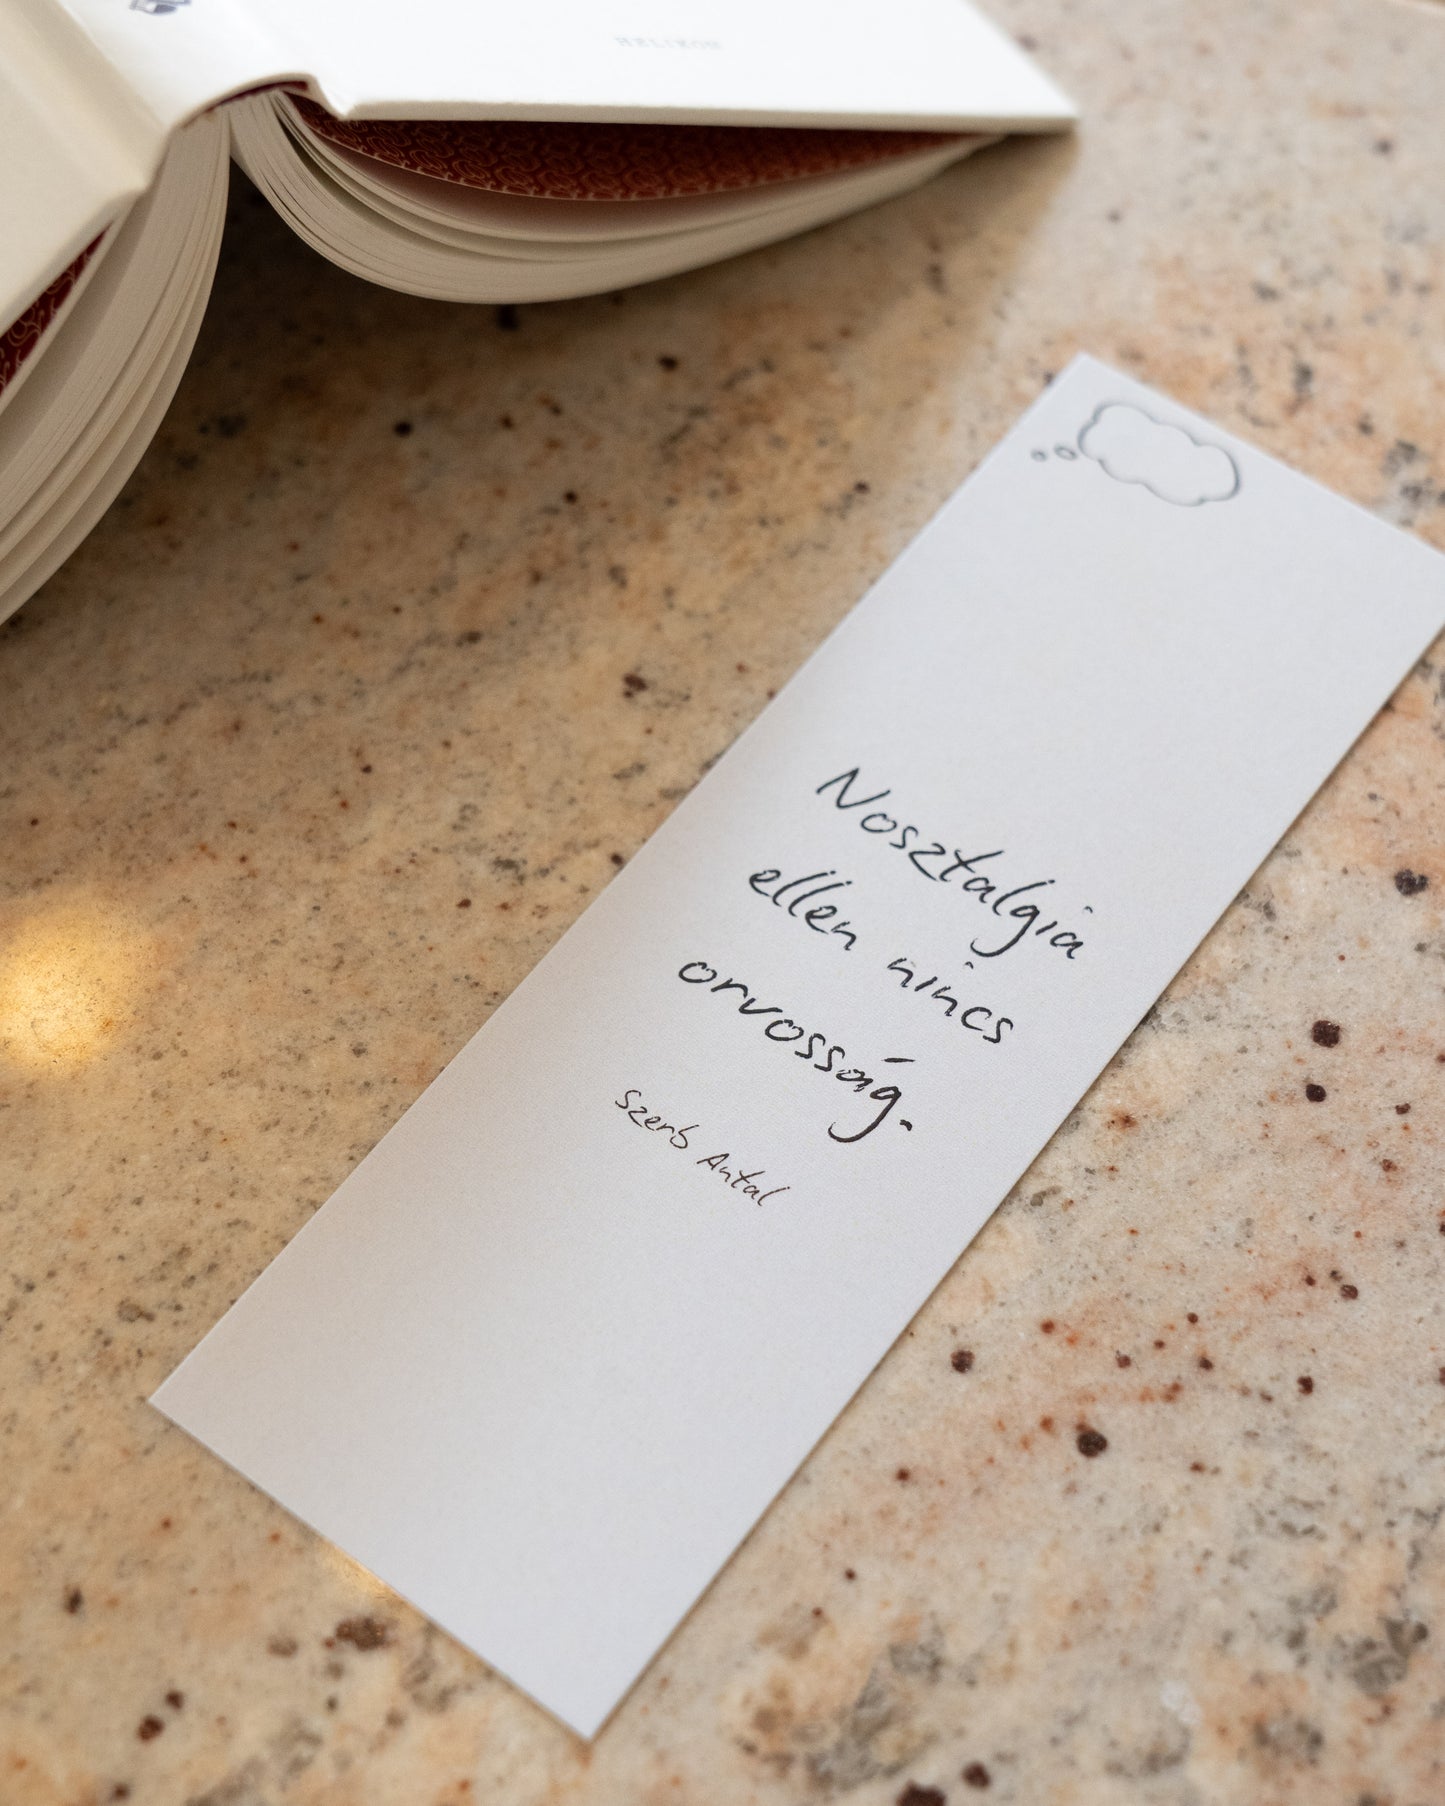 HELIKON
Nosztalgia
ellen nincs
orvosság.
Szerb Antal